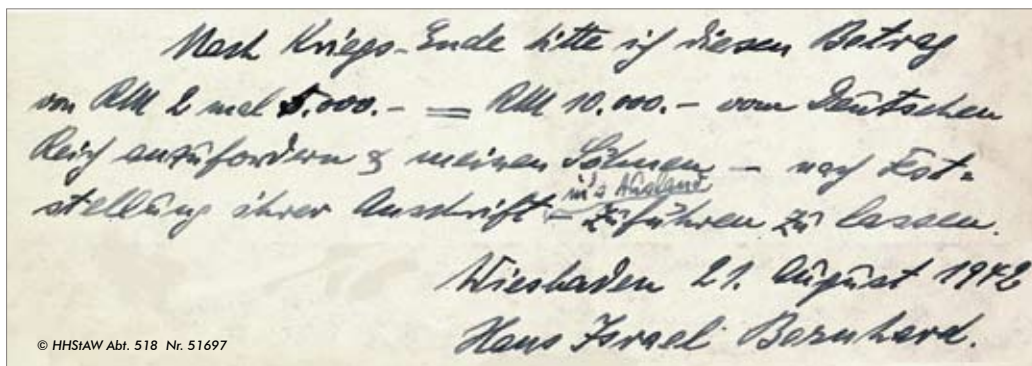 Nach Kriegs-Ende bitte ich diesen Betrag
von RM 2 mal 5.000.- = RM 10.000.- vom Deutschen
Reich anzufordern & meinen Söhnen – nach Fest=
stellung ihrer Anschrift – in's Ausland zuführen zu lassen.
Wiesbaden 21. August 1942
Hans Israel Bernhard.
© HHStAW Abt. 518 Nr. 51697